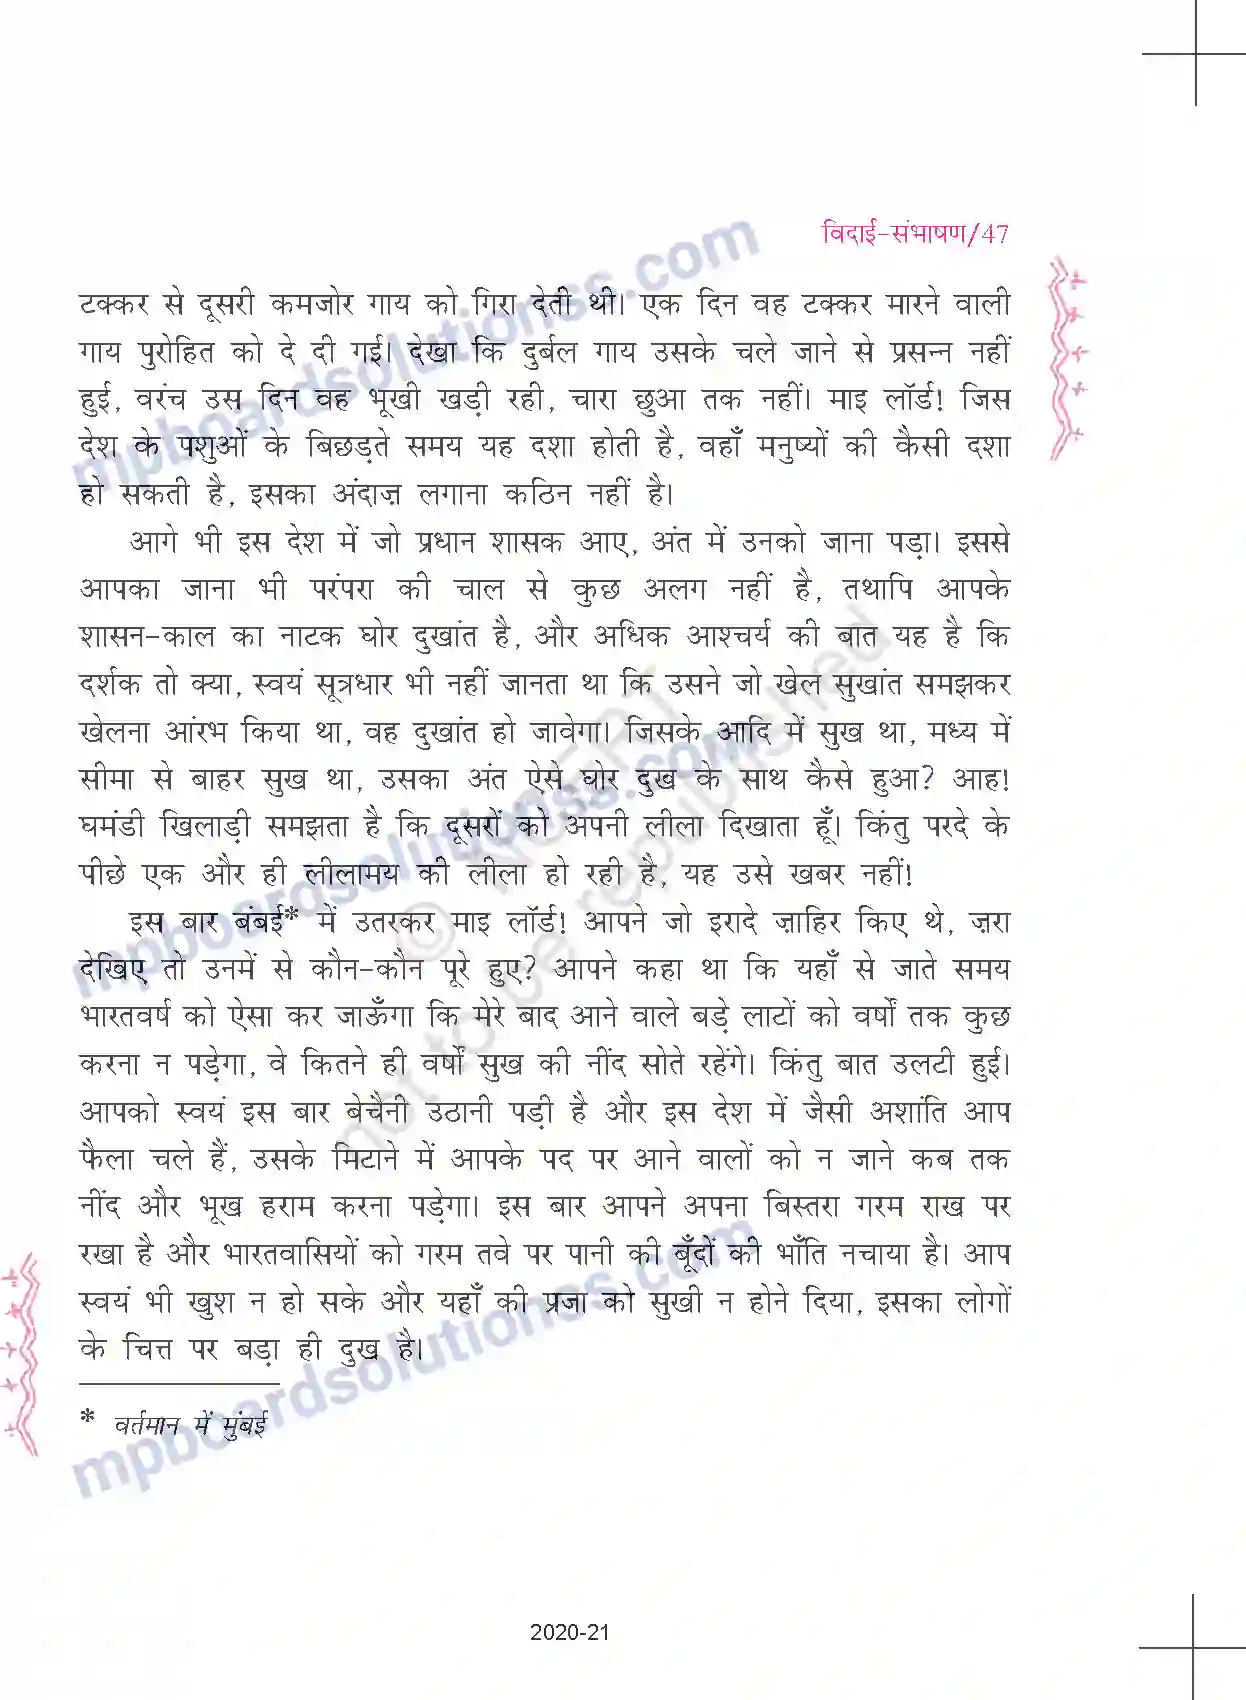 विदाई-संभाषण/47
टक्कर से दूसरी कमजोर गाय को गिरा देती थी। एक दिन वह टक्कर मारने वाली
गाय पुरोहित को दे दी गई। देखा कि दुर्बल गाय उसके चले जाने से प्रसन्न नहीं
हुई, वरंच उस दिन वह भूखी खड़ी रही, चारा छुआ तक नहीं। माइ लॉर्ड! जिस
देश के पशुओं के बिछड़ते समय यह दशा होती है, वहाँ मनुष्यों की कैसी दशा
हो सकती है, इसका अंदाज़ लगाना कठिन नहीं है।
आगे भी इस देश में जो प्रधान शासक आए, अंत में उनको जाना पड़ा। इससे
आपका जाना भी परंपरा की चाल से कुछ अलग नहीं है, तथापि आपके
शासन-काल का नाटक घोर दुखांत है, और अधिक आश्चर्य की बात यह है कि
दर्शक तो क्या, स्वयं सूत्रधार भी नहीं जानता था कि उसने जो खेल सुखांत समझकर
खेलना आंरभ किया था, वह दुखांत हो जावेगा। जिसके आदि में सुख था, मध्य में
सीमा से बाहर सुख था, उसका अंत ऐसे घोर दुख के साथ कैसे हुआ? आह!
घमंडी खिलाड़ी समझता है कि दूसरों को अपनी लीला दिखाता हूँ। किंतु परदे के
पीछे एक और ही लीलामय की लीला हो रही है, यह उसे खबर नहीं!
इस बार बंबई* में उतरकर माइ लॉर्ड! आपने जो इरादे ज़ाहिर किए थे, ज़रा
देखिए तो उनमें से कौन-कौन पूरे हुए? आपने कहा था कि यहाँ से जाते समय
भारतवर्ष को ऐसा कर जाऊँगा कि मेरे बाद आने वाले बड़े लाटों को वर्षों तक कुछ
करना न पड़ेगा, वे कितने ही वर्षों सुख की नींद सोते रहेंगे। किंतु बात उलटी हुई।
आपको स्वयं इस बार बेचैनी उठानी पड़ी है और इस देश में जैसी अशांति आप
फैला चले हैं, उसके मिटाने में आपके पद पर आने वालों को न जाने कब तक
नींद और भूख हराम करना पड़ेगा। इस बार आपने अपना बिस्तरा गरम राख पर
रखा है और भारतवासियों को गरम तवे पर पानी की बूँदों की भाँति नचाया है। आप
स्वयं भी खुश न हो सके और यहाँ की प्रजा को सुखी न होने दिया, इसका लोगों
के चित्त पर बड़ा ही दुख है।
* वर्तमान में मुंबई
2020-21
mpboardsolutionss.com
mpboardsolutionss.com
mpboardsolutionss.com
© NCERT
not to be republished